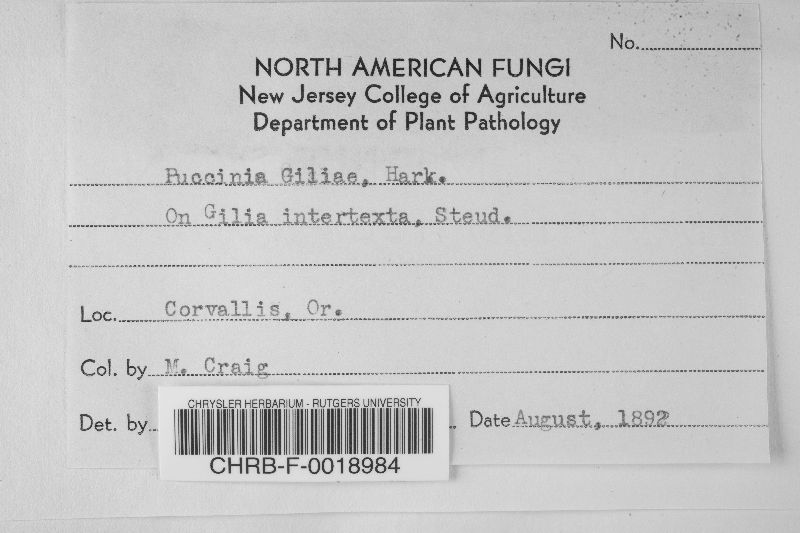 No.
NORTH AMERICAN FUNGI
New Jersey College of Agriculture
Department of Plant Pathology
Puccinia Giliae, Hark.
On Gilia intertexta, Steud.
Loc. Corvallis, Or.
Col. by M. Craig
Det. by
Date August, 1892
CHRYSLER HERBARIUM - RUTGERS UNIVERSITY
CHRB-F-0018984